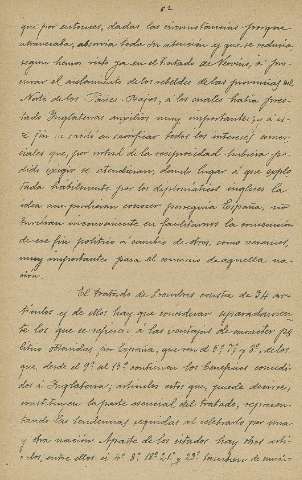 82
que por entonces, dadas las circunstancias porque
atravesaba, absorvia toda su atención y que se reducia
segun hemos visto ya en el tratado de Vervins, á pro-
curar el aislamiento de los rebeldes de las provincias del
Norte de los Paises-Bajos, á los cuales habia pres-
tado Inglaterra auxilios muy importantes; y á es-
te fin sacrificar todos los intereses comer-
ciales que, por virtud de la reciprocidad hubiera po-
dido exigir se atendieran, dando lugar á que explo-
tada habilmente por los diplomáticos ingleses la
idea que pudieran conocer perseguia España, no
tuvieran inconveniente en facilitarnos la consecución
de ese fin politico á cambio de otros, como veremos,
muy importantes para el comercio de aquella na-
ción.
El tratado de Londres consta de 34 ar-
tículos y de ellos hay que considerar separadamen-
te los que se refieren á las ventajas de carácter po-
lítico obtenidas por España, que son el 5º, 7º y 8º, de los
que, desde el 9º al 15º contienen los beneficios concedi-
dos á Inglaterra; articulos estos que, puede decirse,
constituyen la parte esencial del tratado, represen-
tando las tendencias seguidas al celebrarlo por una
y otra nación. Aparte de los citados hay otros arti-
culos, entre ellos el 4º, 8º, 18º, 21º, y 23º,